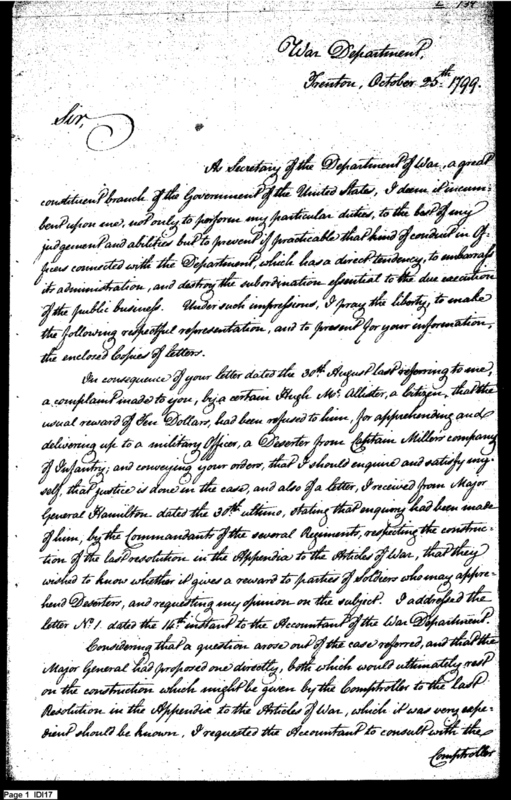 War Department,
Trenton, October 25th 1799.
Sir,
As Secretary of the Department of War, a great
constituent branch of the Government of the United States, I deem it incum-
bent upon me, not only to perform my particular duties, to the best of my
judgement and abilities but to prevent if practicable that kind of conduct in Of-
ficers connected with the Department, which has a direct tendency, to embarrass
its administration, and destroy the subordination essential to the due execution
of the public business. Under such impressions, I pray the liberty, to make
the following respectful representation, and to present for your information,
the enclosed Copies of letters.
In consequence of your letter dated the 30th August last referring to me,
a complaint made to you, by a certain Hugh Mc. Allister, a Citizen, that the
usual reward of Ten Dollars, had been refused to him, for apprehending and
delivering up to a military Officer, a Deserter from Captain Millers company
of Infantry; and conveying your orders, that I should enquire and satisfy my-
self, that justice is done in the case, and also of a letter, I received from Major
General Hamilton dated the 30th ultimo, stating that enquiry had been made
of him, by the Commandants of the several Regiments, respecting the construc-
tion of the last resolution in the Appendix to the Articles of War, that they
wished to know whether it gives a reward to parties of soldiers who may appre-
hend Deserters, and requesting my opinion on the subject. I addressed the
letter No. 1. dated the 14th instant to the Accountant of the War Department.
Considering that a question arose out of the case referred, and that the
Major General had proposed one directly, both which would ultimately rest
on the construction which might be given by the Comptroller to the last
Resolution in the Appendix to the Articles of War, which it was very expe-
dient should be known, I requested the Accountant to consult with the
Comptroller
Page 1 IDI17